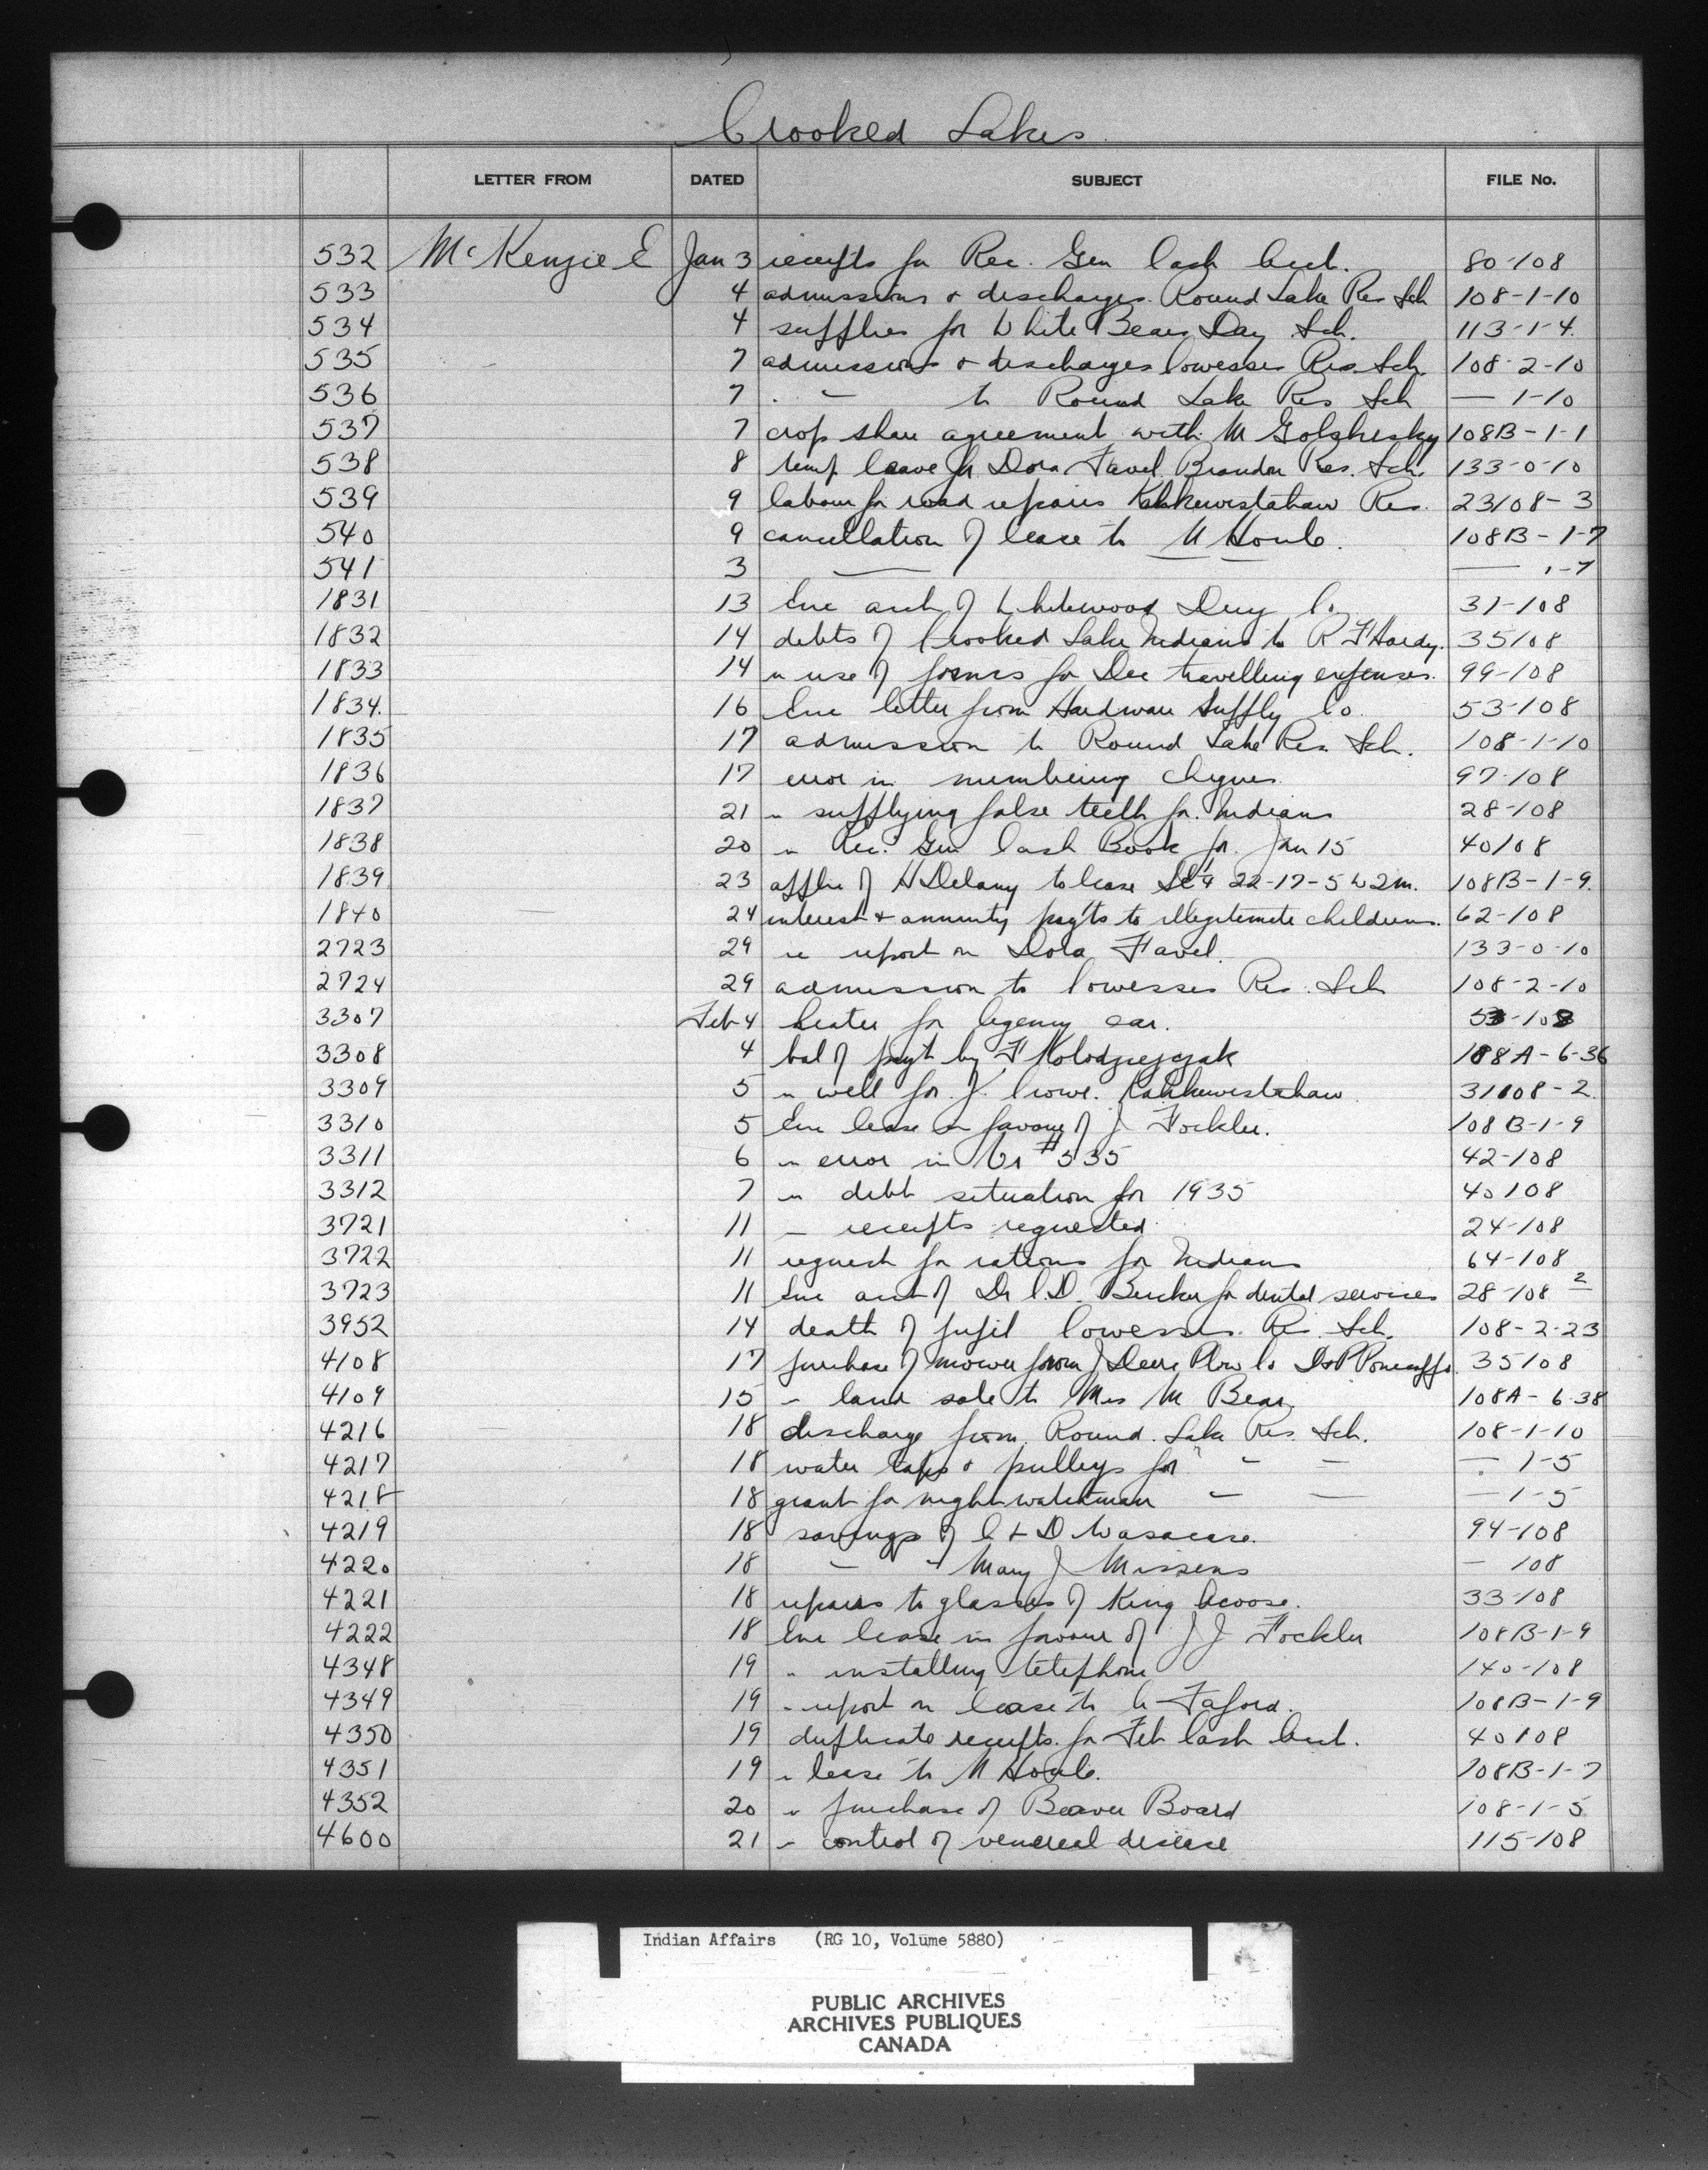 Crooked Lakes
LETTER FROM DATED SUBJECT FILE No.
532 McKenzie E Jan 3 receipts for Rec. Gen Cash Acct. 80-108
533 4 admissions & discharges Round Lake Res Sch 108-1-10
534 4 supplies for White Bears Day Sch. 113-1-4.
535 7 admissions & discharges Cowesses Res. Sch. 108-2-10
536 7 " — to Round Lake Res Sch — 1-10
537 7 crop share agreement with M 108B-1-1
538 8 temp leave for Dora Favel Brandon Res. Sch. 133-0-10
539 9 labour for road repairs Kahkewistahaw Res. 23/108-3
540 9 cancellation of lease to M Houle. 108B-1-7
541 3 — — — 1-7
1831 13 Enc acct of Whitewood Drug Co 31-108
1832 14 debts of Crooked Lake Indians to R F Hardy. 35108
1833 14 re use of forms for Dec travelling expenses. 99-108
1834. 16 Enc letter from Hardware Supply Co 53-108
1835 17 admission to Round Lake Res. Sch. 108-1-10
1836 17 error in numbering cheques 97-108
1837 21 re supplying false teeth for Indians 28-108
1838 20 re Rec. Gen Cash Book for Jan 15 40/08
1839 23 applic of H Delany to lease SE4 22-17-5 W2m. 108B-1-9.
1840 24 interest & annuity pay'ts to illegitimate children. 62-108
2723 29 re report on Dora Favel. 133-0-10
2724 29 admission to Cowesses Res. Sch 108-2-10
3307 Feb 4 heater for Agency car. 53-108
3308 4 bal of payt by F Kolodziejczak 108A-6-36
3309 5 re well for J. Crowe. Kahkewistahaw 31108-2.
3310 5 Enc lease in favour of J Fockler. 108B-1-9
3311 6 re error in Vr #535 42-108
3312 7 re debt situation for 1935 40108
3721 11 — receipts requested 24-108
3722 11 request for rations for Indians 64-108
3723 11 Enc acct of Dr C.D. for dental services 28-108 2
3952 14 death of pupil Cowesses. Res. Sch. 108-2-23
4108 17 purchase of mower from J Deere Plow Co 35108
4109 15 " land sale to Mrs M Bear 108A-6-38
4216 18 discharge from Round Lake Res. Sch. 108-1-10
4217 18 water taps & pulleys for " — — — 1-5
4218 18 grant for night watchman — — — 1-5
4219 18 savings of C & D Wasacase. 94-108
4220 18 — " Mary J Missens — 108
4221 18 repairs to glasses of King Acoose. 33-108
4222 18 Enc lease in favour of J J Fockler 108B-1-9
4348 19 " installing telephone 140-108
4349 19 " report on lease to 108B-1-9
4350 19 duplicate receipts for Feb Cash Acct. 40108
4351 19 " lease to M Houle. 108B-1-7
4352 20 " purchase of Beaver Board 108-1-5
4600 21 " control of venereal disease 115-108
Indian Affairs (RG 10, Volume 5880)
PUBLIC ARCHIVES
ARCHIVES PUBLIQUES
CANADA